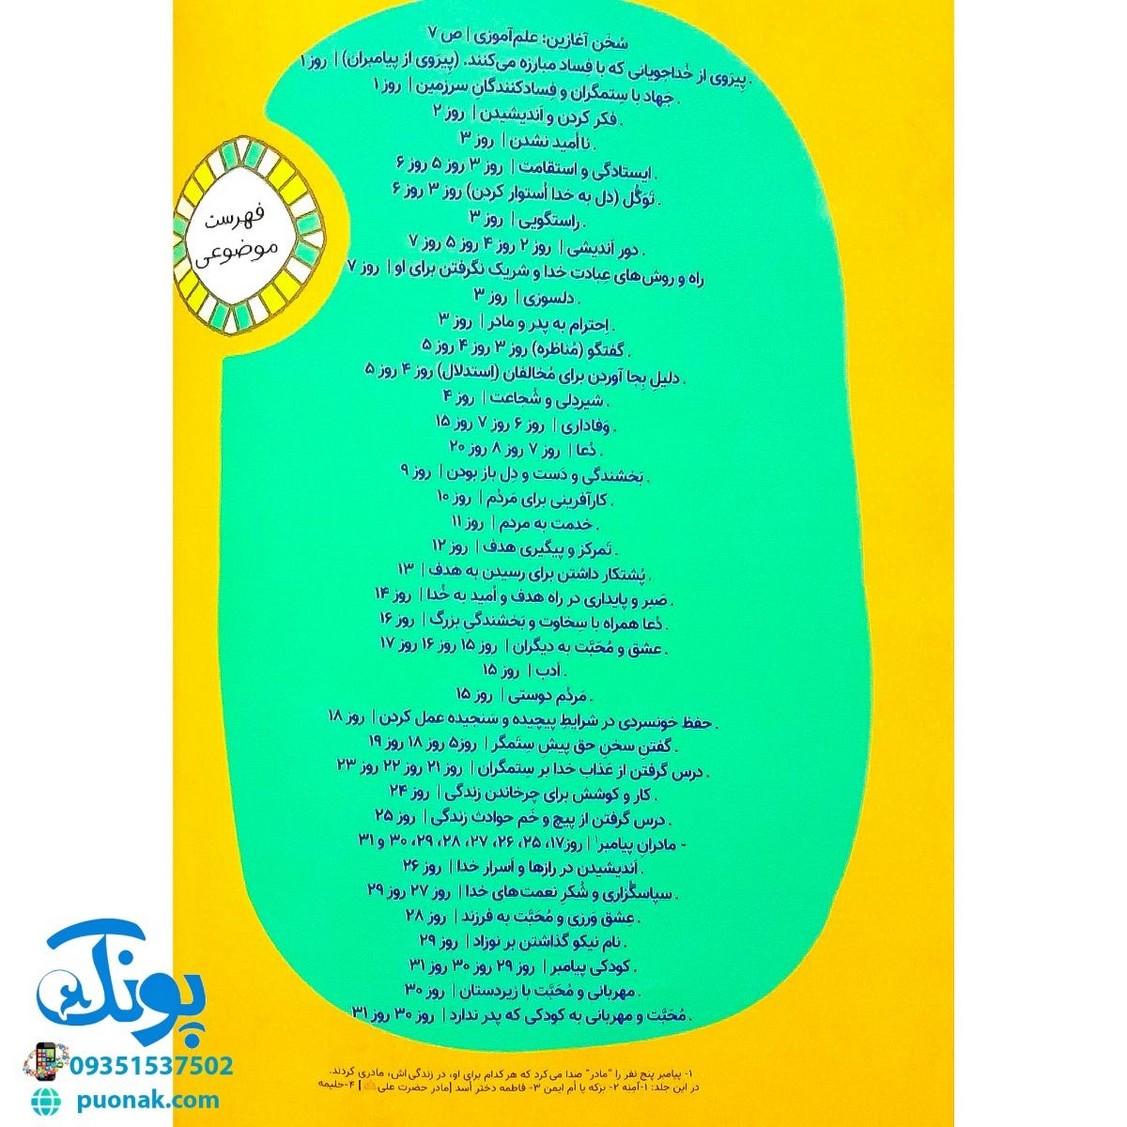 سُخَن آغازین: علم‌آموزی | ص ۷
. پیرَوی از خُداجویانی که با فِساد مبارزه می‌کنند. (پِیرَوی از پیامبران) | روز ۱
. جَهاد با سِتمگران و فِسادکنندگانِ سرزمین | روز ۱
. فکر کردن و اَندیشیدن | روز ۲
. نااُمید نشدن | روز ۳
. ایستادگی و استقامت | روز ۳ روز ۵ روز ۶
. تَوَکُّل (دل به خدا اُستوار کردن) روز ۳ روز ۶
. راستگویی | روز ۳
. دور اَندیشی | روز ۲ روز ۴ روز ۵ روز ۷
راه و روش‌های عِبادتِ خدا و شریک نگرفتن برای او | روز ۷
. دلسوزی | روز ۳
. اِحترام به پدر و مادر | روز ۳
. گفتگو (مُناظره) روز ۳ روز ۴ روز ۵
. دلیل بِجا آوردن برای مُخالفان (استدلال) روز ۴ روز ۵
. شیردِلی و شُجاعت | روز ۴
. وَفاداری | روز ۶ روز ۷ روز ۱۵
. دُعا | روز ۷ روز ۸ روز ۲۰
. بَخشندگی و دَست و دِل باز بودن | روز ۹
. کارآفرینی برای مَردُم | روز ۱۰
. خدمت به مردم | روز ۱۱
. تَمرکز و پیگیری هدف | روز ۱۲
. پُشتکار داشتن برای رسیدن به هدف | ۱۳
. صَبر و پایداری در راه هدف و اُمید به خُدا | روز ۱۴
. دُعا همراه با سِخاوت و بَخشندگیِ بزرگ | روز ۱۶
. عشق و مُحَبَّت به دیگران | روز ۱۵ روز ۱۶ روز ۱۷
. اَدب | روز ۱۵
. مَردُم دوستی | روز ۱۵
. حفظ خونسردی در شرایطِ پیچیده و سَنجیده عمل کردن | روز ۱۸
. گفتنِ سخنِ حق پیشِ سِتَمگر | روز۵ روز ۱۸ روز ۱۹
. درس گرفتن از عَذاب خدا بر سِتمگران | روز ۲۱ روز ۲۲ روز ۲۳
. کار و کوشش برای چرخاندن زندگی | روز ۲۴
. درس گرفتن از پیچ و خَم حوادث زندگی | روز ۲۵
- مادرانِ پیامبر۱ | روز۱۷، ۲۵، ۲۶، ۲۷، ۲۸، ۲۹، ۳۰ و ۳۱
. اَندیشیدن در رازها و اَسرار خدا | روز ۲۶
. سپاسگُزاری و شُکرِ نعمت‌های خدا | روز ۲۷ روز ۲۹
. عِشق وَرزی و مُحَبَّت به فرزند | روز ۲۸
. نام نیکو گذاشتن بر نوزاد | روز ۲۹
. کودکی پیامبر | روز ۲۹ روز ۳۰ روز ۳۱
. مهربانی و مُحَبَّت با زیردستان | روز ۳۰
. مُحَبَّت و مهربانی به کودکی که پدر ندارد | روز ۳۰ روز ۳۱
فهرست
موضوعی
۱- پیامبر پنج نفر را "مادر" صدا می‌کرد که هر کدام برای او، در زندگی‌اش، مادری کردند.
در این جلد: ۱-آمِنه ۲- بَرَکه یا اُم ایمن ۳- فاطمه دختر اَسد [مادر حضرت علی] ۴-حلیمه
پونک
09351537502
puonak.com